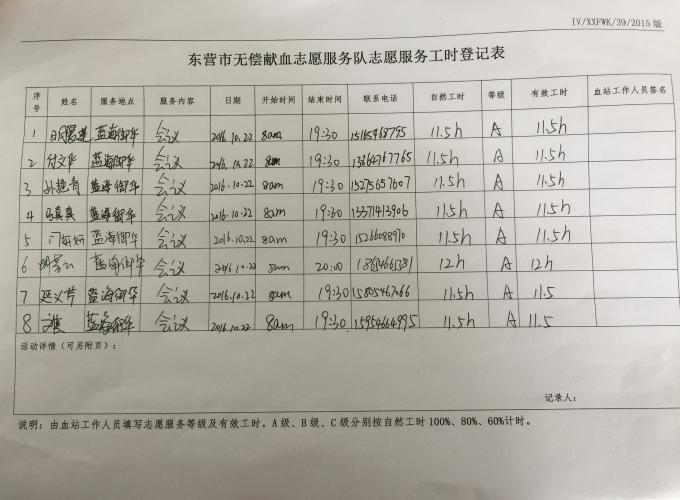 IV/XXFWK/39/2015版
东营市无偿献血志愿服务队志愿服务工时登记表
序号 姓名 服务地点 服务内容 日期 开始时间 结束时间 联系电话 自然工时 等级 有效工时 血站工作人员签名
1 蓝海御华 会议 2016.10.22 8am 19:30 15165468795 11.5h A 11.5h
2 付文华 蓝海御华 会议 2016.10.22 8am 19:30 13864767765 11.5h A 11.5h
3 孙艳青 蓝海御华 会议 2016.10.22 8am 19:30 15275657607 11.5h A 11.5h
4 马真真 蓝海御华 会议 2016.10.22 8am 19:30 13371413906 11.5h A 11.5h
5 门妍妍 蓝海御华 会议 2016.10.22 8am 19:30 15266088970 11.5h A 11.5h
6 蓝海御华 会议 2016.10.22 8am 20:00 12h A 12h
7 延义芹 蓝海御华 会议 2016.10.22 8am 19:30 15805467066 11.5h A 11.5
8 蓝海御华 会议 2016.10.22 8am 19:30 15954664995 11.5h A 11.5
活动详情（可另附页）：
记录人：
说明：由血站工作人员填写志愿服务等级及有效工时。A级、B级、C级分别按自然工时100%、80%、60%计时。